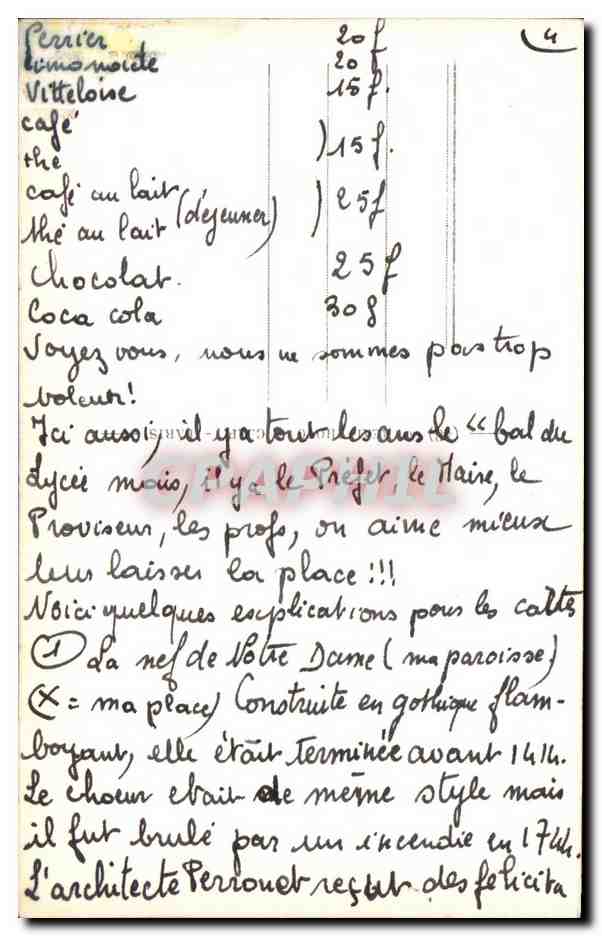 Perrier 20 f 4
Limonade 20 f
Vitteloise 15 f.
café
thé ) 15 f.
café au lait
thé au lait (déjeuner) ) 25 f
chocolat. 25 f
Coca cola 30 f
Voyez vous, nous ne sommes pas trop
voleur!
Ici aussi, il y a tout les ans le "bal du
Lycée mais, il y a le Préfet, le Maire, le
Proviseur, les profs, on aime mieux
leur laisser la place!!!
Voici quelques explications pour les cartes
① La nef de Notre Dame (ma paroisse)
(x = ma place) Construite en gothique flam-
boyant, elle était terminée avant 1414.
Le choeur etait de même style mais
il fut brulé par un incendie en 1744.
L'architecte Perronet reçut des felicita
CPAPHIL